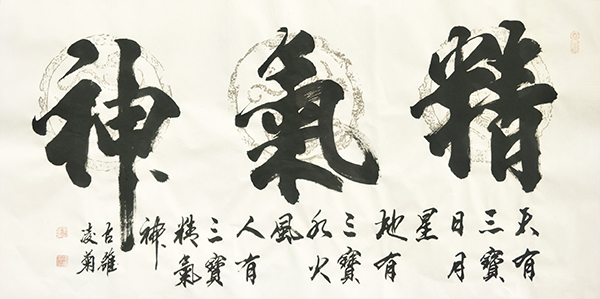 精氣神
天有
三寶
日月
星
地有
三寶
水火
風
人有
三寶
精氣
神
古雒
凌菊